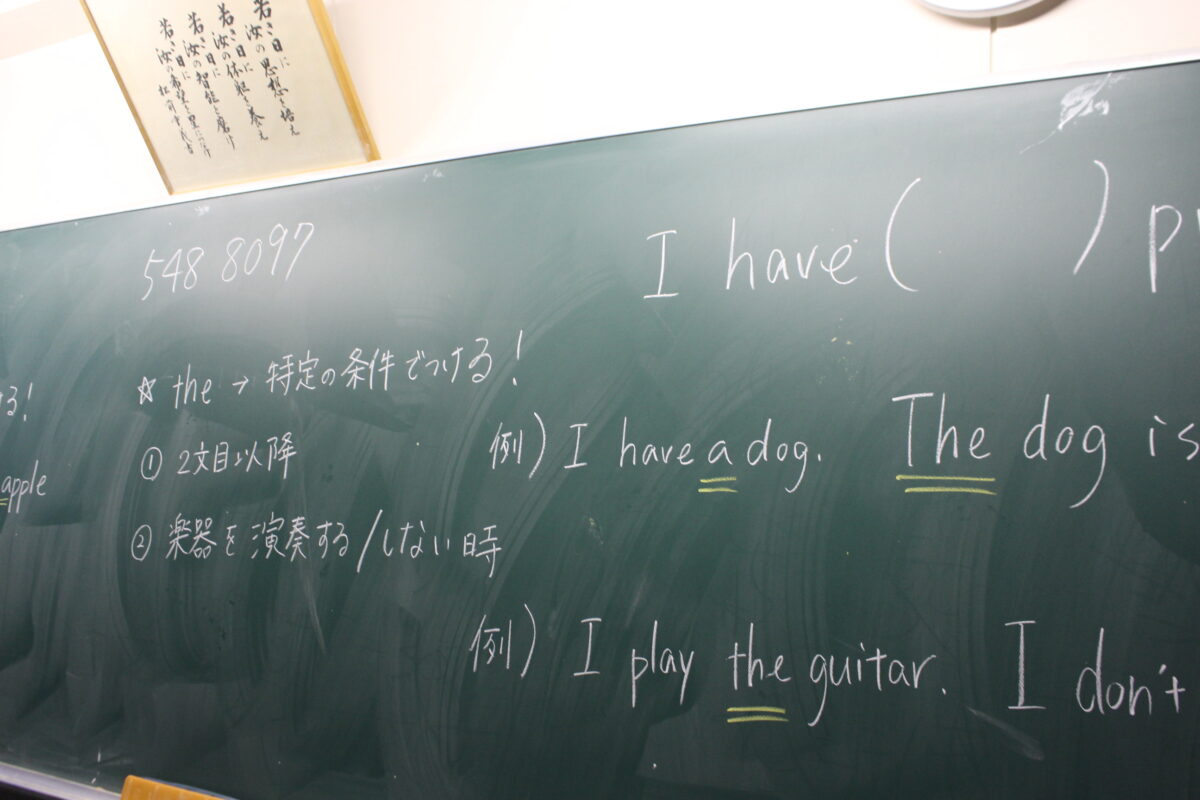 若き日に汝の思想を培え
若き日に汝の体躯を養え
若き日に汝の智能を磨け
若き日に汝の希望を星につなげ
548 8097
I have (　　) p
る!
☆ the → 特定の条件でつける!
apple
① 2文目以降
例) I have a dog. The dog is
② 楽器を演奏する/しない時
例) I play the guitar. I don't